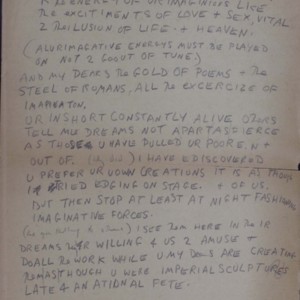 ENERGY OF UR IMAGINIONS LIKE
THE EXCITMENTS OF LOVE + SEX, VITAL
2 THE ILUSION OF LIFE. + HEAVEN.
( ALUR IMAGATIVE ENERGYS MUST BE PLAYED
ON NOT 2 GO OUT OF TUNE)
AND MY DEARS THE GOLD OF POEMS + THE
STEEL OF ROMANS, ALL THE EXCERCIZE OF
UR IN SHORT CONSTANTLY ALIVE
TELL ME DREAMS NOT APART AS FIERCE
AS THOSE U HAVE PULLED UR POORE
OUT OF. I HAVE DISCOVERED
U PREFER UR OWN CREATIONS IT IS AS
EDGING ON STAGE. + OF US.
BUT THEN STOP AT LEAST AT NIGHT FASHIONING
IMAGINATIVE FORCES.
I SEE THEM HERE IN THEIR
DREAMS WILLING 4 US 2 AMUSE +
DO ALL THE WORK WHILE U MY DEARS ARE CREATING
AS THOUGH U WERE IMPERIAL SCULPTURES
LATE 4 A NATIONAL FETE.